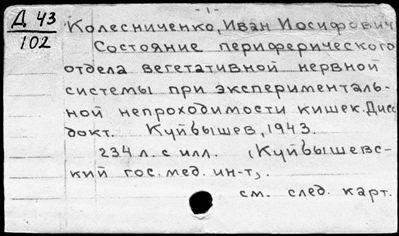 - 1 -
Д 43
102
Колесниченко, Иван Иосифович
Состояние периферического
отдела вегетативной нервной
системы при эксперименталь-
ной непроходимости кишек. Дисс
докт. Куйбышев, 1943.
234 л. с илл. (Куйбышевс-
кий гос. мед. ин-т).
см. след. карт.